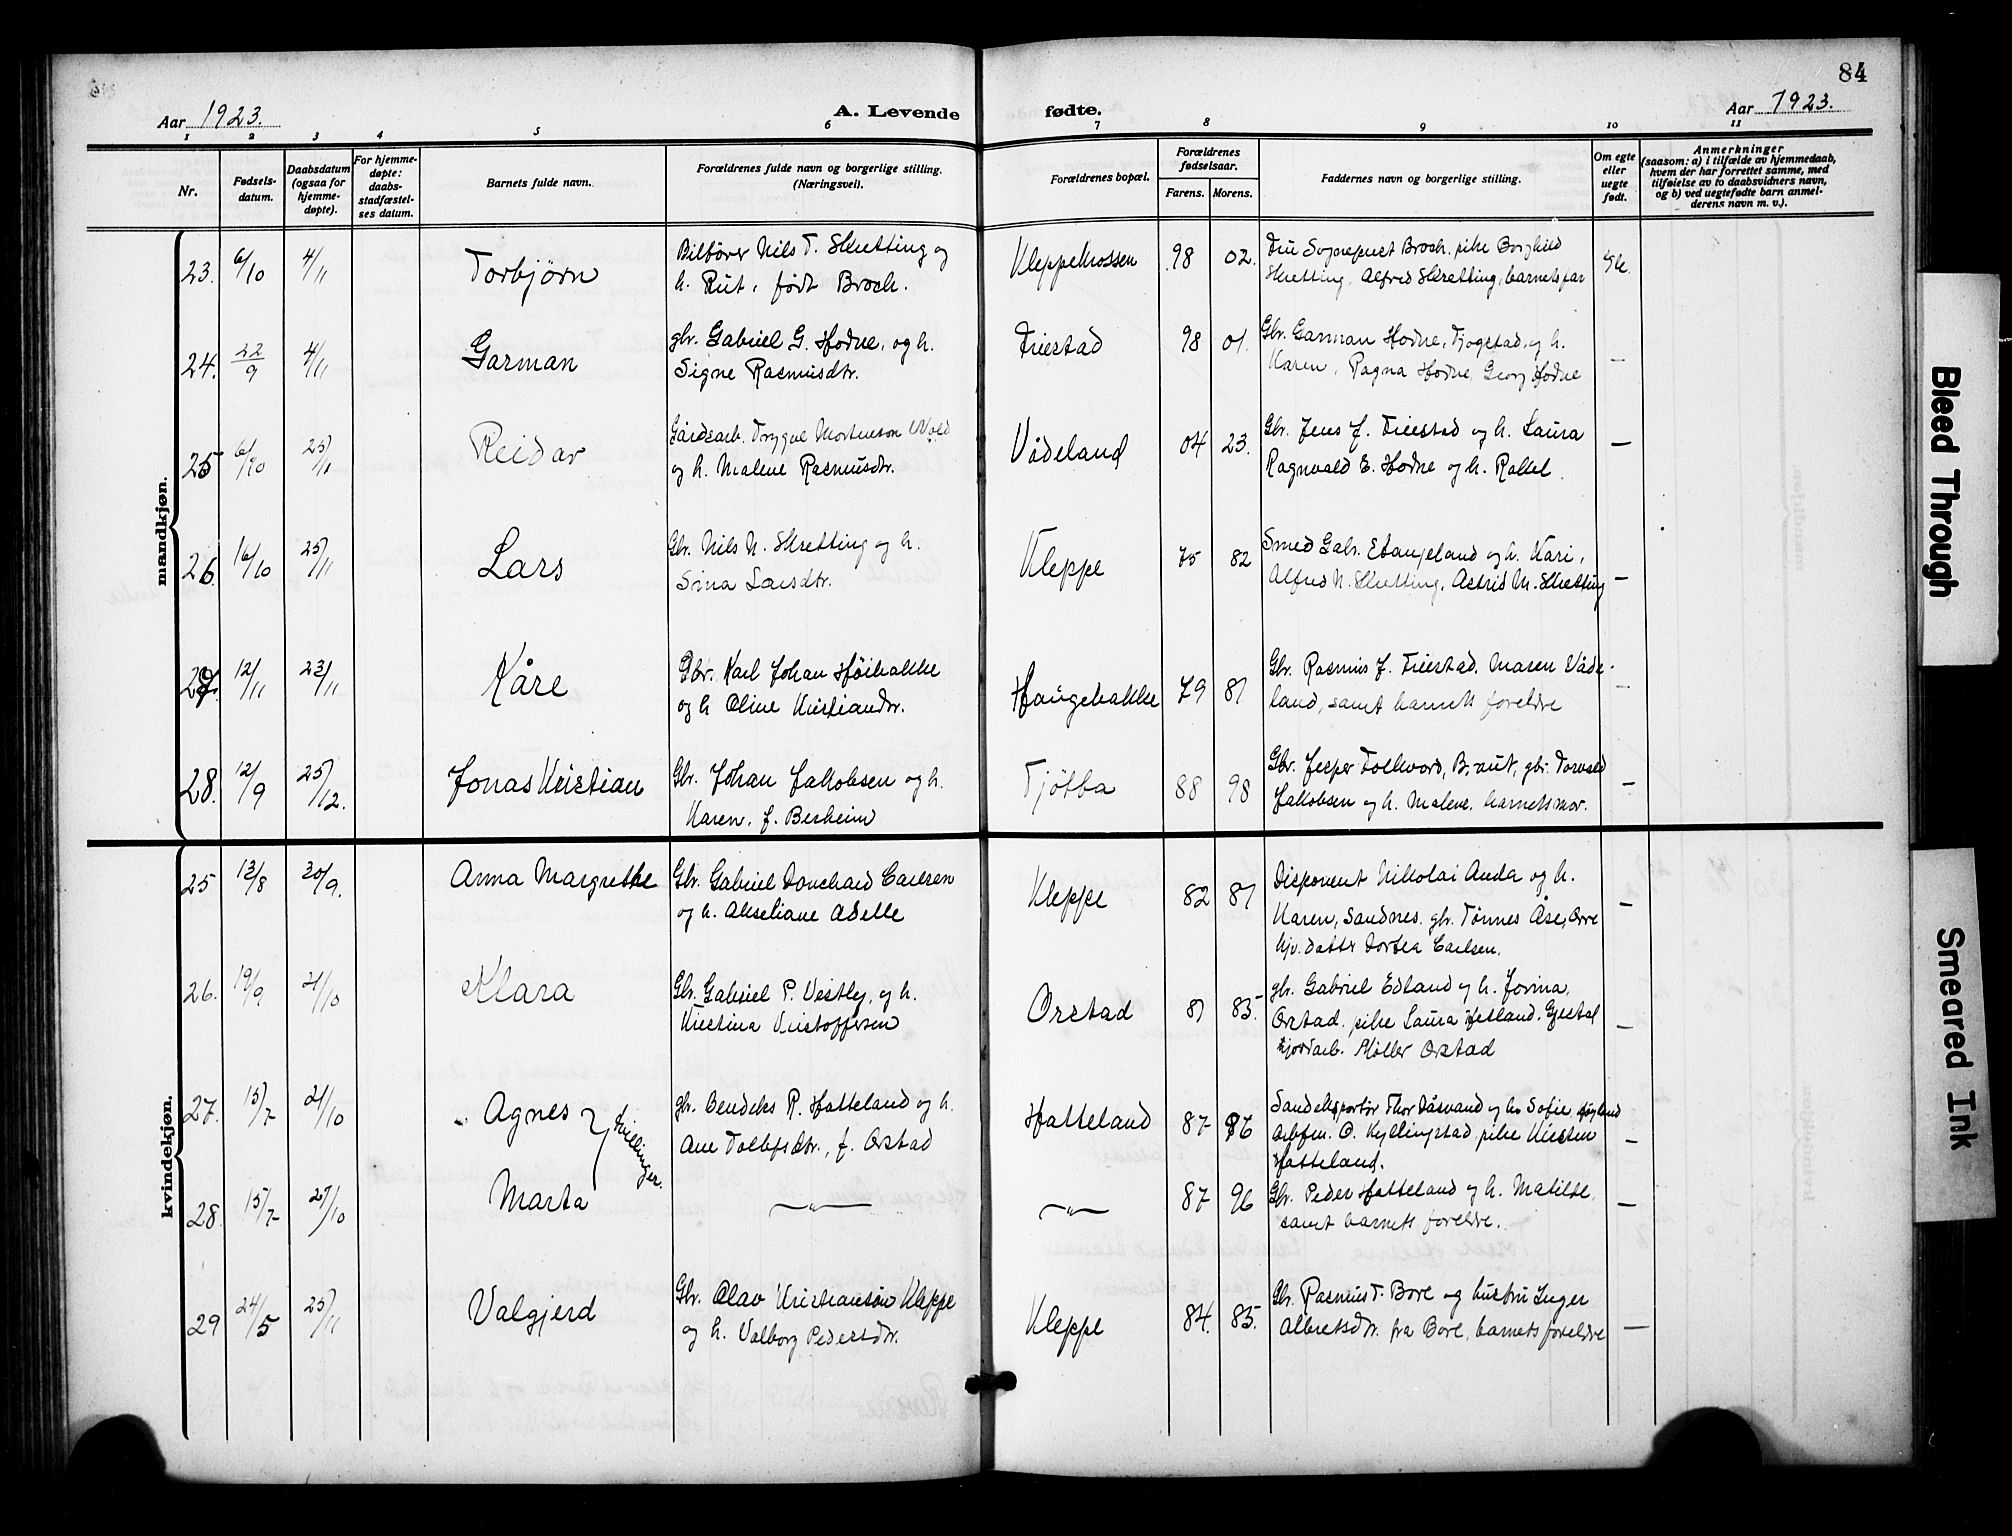 84
Aar 1923.
A. Levende fødte.
Aar 1923.
1 2 3 4 5 6 7 8 9 10 11
Nr.
Fødsels-
datum.
Daabsdatum
(ogsaa for
hjemme-
døpte).
For hjemme-
døpte:
daabs-
stadfæstel-
ses datum.
Barnets fulde navn.
Forældrenes fulde navn og borgerlige stilling.
(Næringsvei).
Forældrenes bopæl.
Forældrenes
fødselsaar.
Farens. Morens.
Faddernes navn og borgerlige stilling.
Om egte
eller
uegte
født.
Anmerkninger
(saasom: a) i tilfælde av hjemmedaab,
hvem der har forrettet samme, med
tilføielse av to daabsvidners navn,
og b) ved uegtefødte barn anmel-
derens navn m. v.).
mandkjøn.
23. 6/10 4/11 Torbjørn
Bilfører Nils T. Skretting og
h. Rut, født Broch.
Kleppekrossen 98 02.
Fru Sogneprest Broch, pike Borghild
Skretting, Alfred Skretting, barnets far
24. 22/9 4/11 Garman
gbr. Gabriel G. Hodne, og h.
Signe Rasmusdtr.
Friestad 98 01.
Gbr. Garman Hodne, Tjogstad, og h.
Karen, Ragna Hodne, Georg Hodne
—
25 6/10 25/11 Reidar
Gårdsarb. Trygve Mortenson
og h. Malene Rasmusdtr.
Vådeland 04 23.
Gbr. Jens J. Friestad og h. Laura
Ragnvald E. Hodne og h. Rakel.
—
26. 16/10 25/11 Lars
Gbr. Nils N. Skretting og h.
Sina Larsdtr.
Kleppe 75 82
Smed Gabr. Evangeland og h. Kari,
Alfred N. Skretting, Astrid M. Skretting
—
27. 12/11 23/11 Kåre
Gbr. Karl Johan Høibakke
og h Oline Kristiandtr.
Haugebakke 79 81
Gbr. Rasmus J. Friestad, Maren Våde-
land, samt barnets foreldre
—
28. 12/9 25/12. Jonas Kristian
Gbr. Johan Jakobsen og h.
Karen, f. Berheim
Tjøtta 88 98
Gbr. Jesper Folkvord, B.raut, gbr. Torvald
Jakobsen og h. Malene, barnets mor.
—
kvindekjøn.
25 13/8 30/9. Anna Margrethe
Gbr. Gabriel Donchard Carlsen
og h. Akseliane Adelle
Kleppe 82 87
Disponent Nikolai Anda og h.
Karen, Sandnes. gbr. Tønnes Åse, Orre
hjv. datter Dortea Carlsen.
—
26. 19/9 21/10 Klara
Gbr. Gabriel P. Vestly, og h.
Kristina Kristoffersen
Orstad 81 85.
gbr. Gabriel Edland og h. Jorina,
Orstad. pike Laura Hetland, Gjestal
Møller Orstad
—
27. 15/7 21/10 Agnes } tvillinger.
gbr. Bendiks R. Hatteland og h.
Ane Tollefsdtr., f. Orstad
Hatteland 87 96
Sandeksportør Thor Dåsvand og h. Sofie, Høgland
O. Kyllingstad pike Kirsten
Hatteland.
—
28. 15/7 27/10 Marta
—"— —"— 87 96
Gbr. Peder Hatteland og h. Matilde,
samt barnets foreldre.
—
29 24/5 25/11 Valgjerd
Gbr. Olav Kristiansøn Kleppe
og h. Valborg Pedersdtr.
Kleppe 84. 85.
Gbr. Rasmus T. Bore og hustru Inger
Albretsdtr. fra Bore, barnets foreldre
—
Bleed Through
Smeared Ink